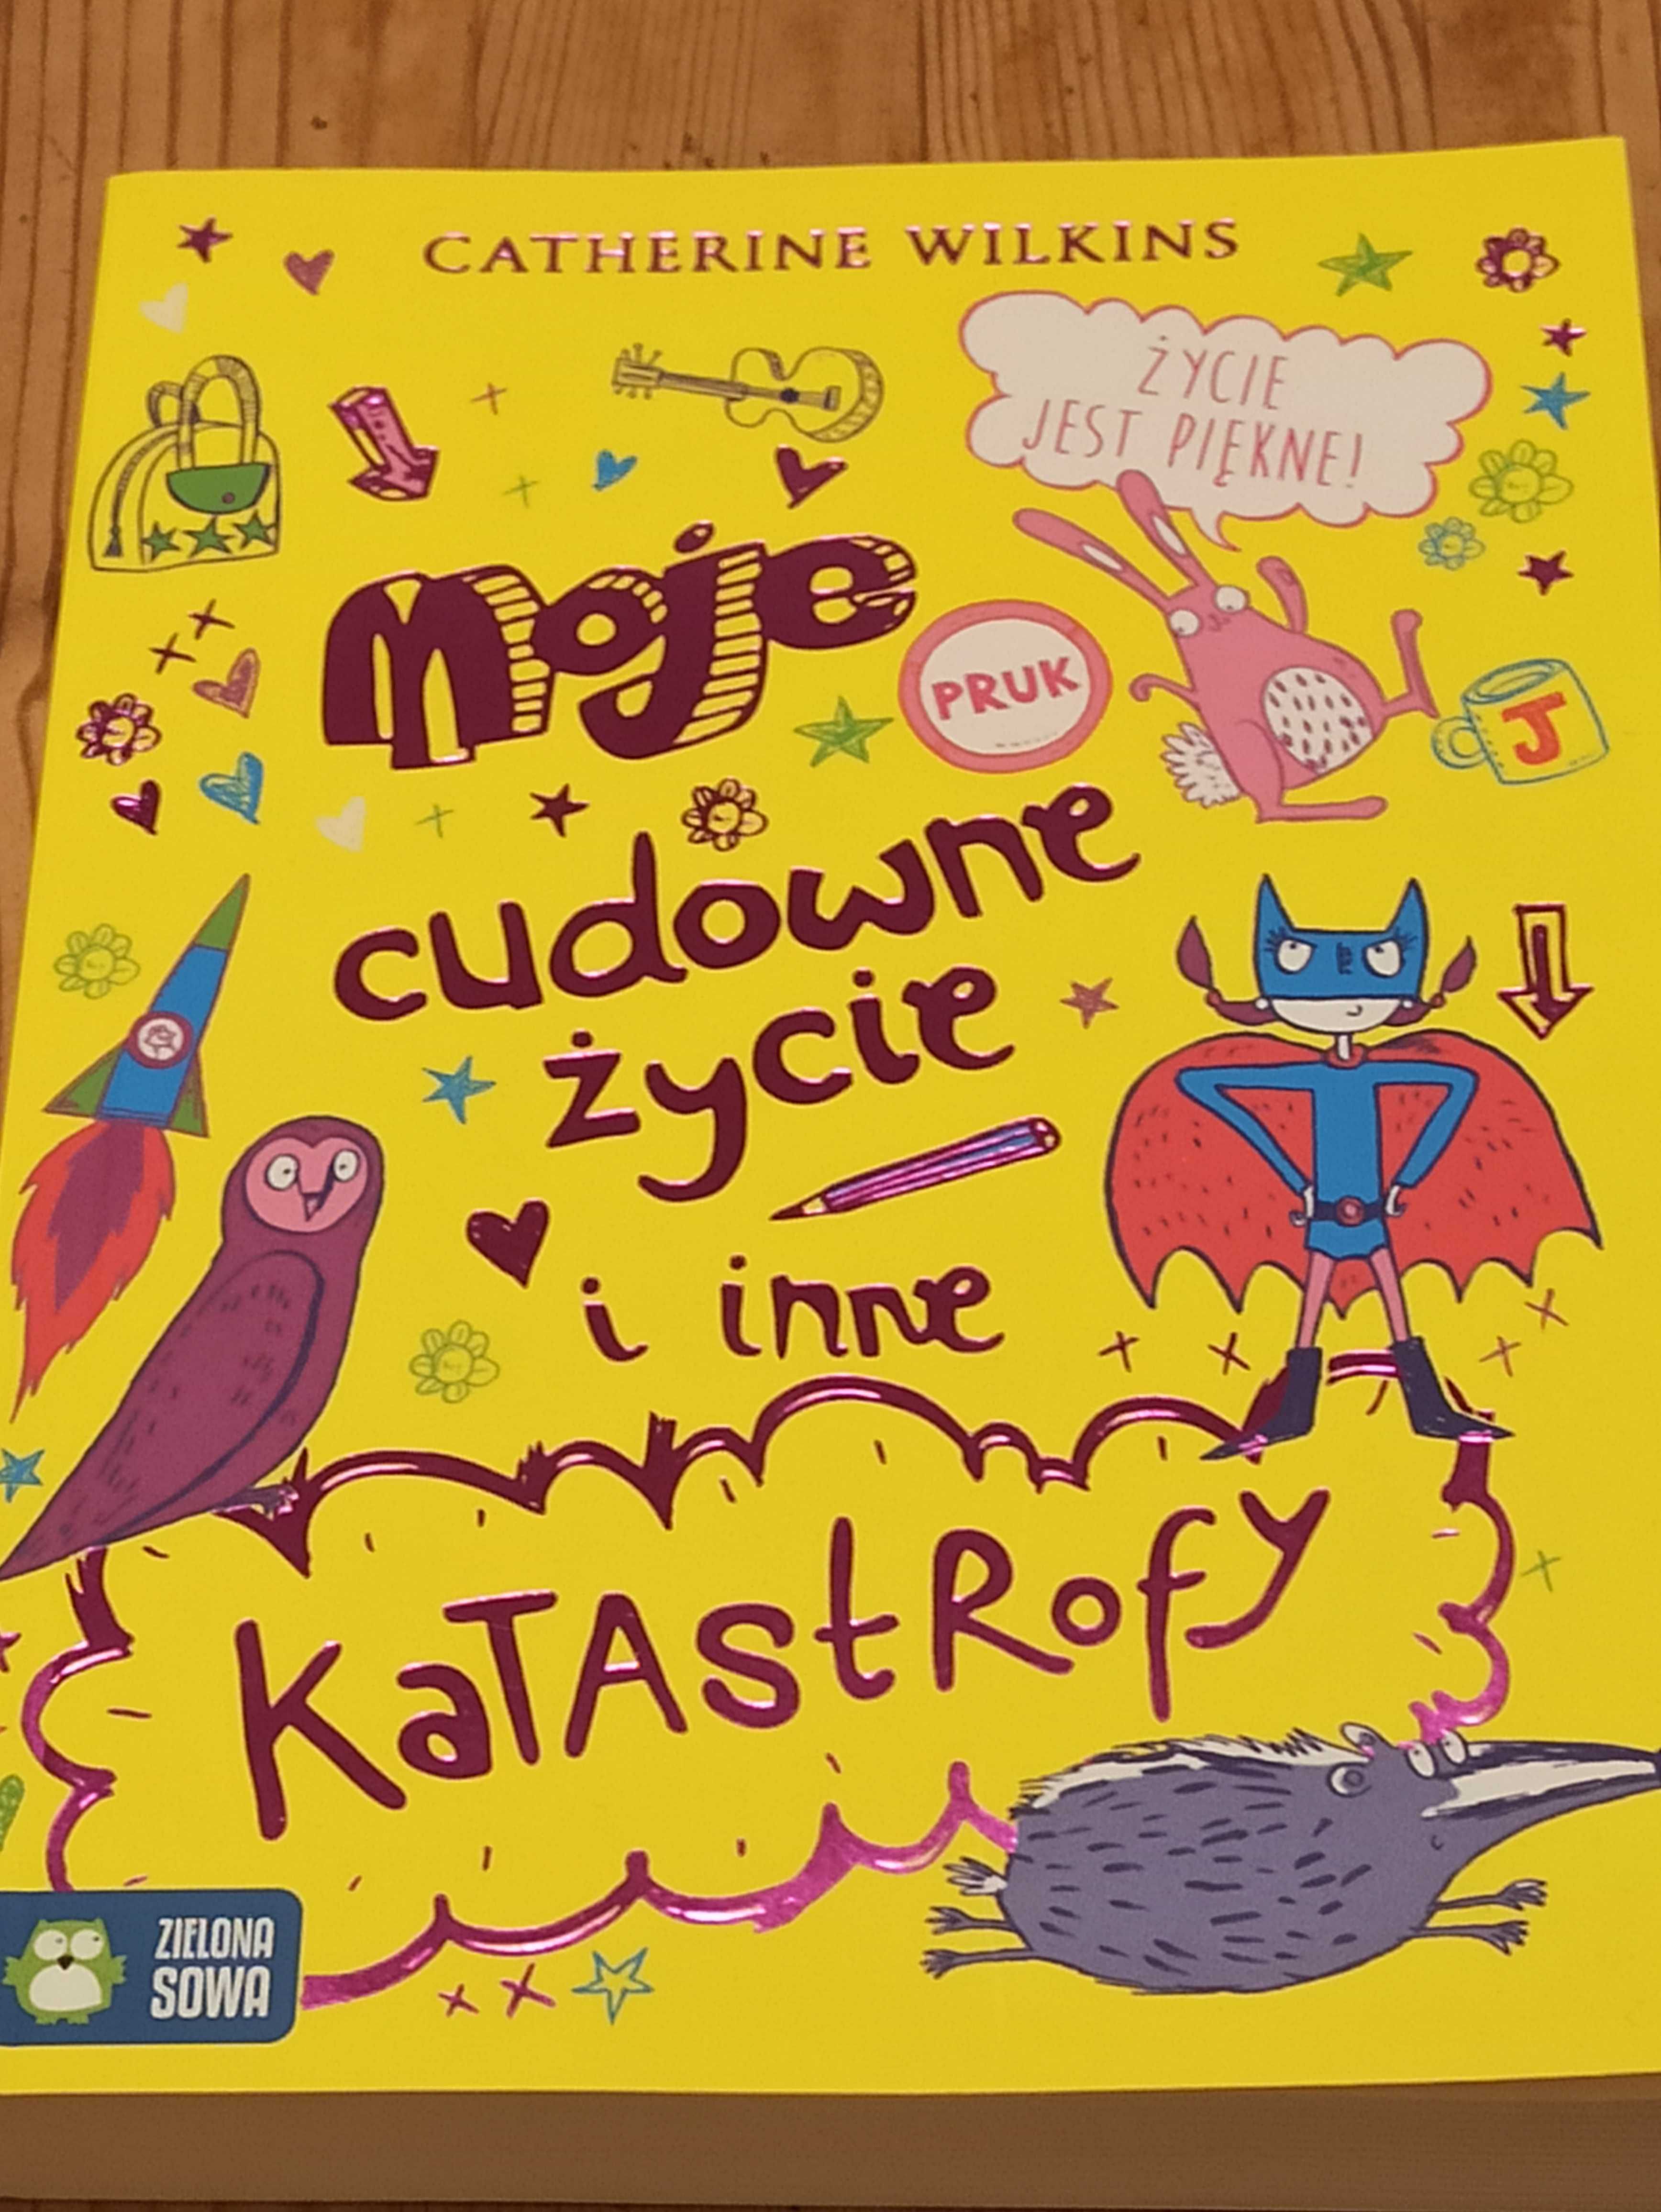 CATHERINE WILKINS
ŻYCIE
JEST PIĘKNE!
Moje
PRUK
J
cudowne
życie
i inne
KaTAStRofy
ZIELONA
SOWA